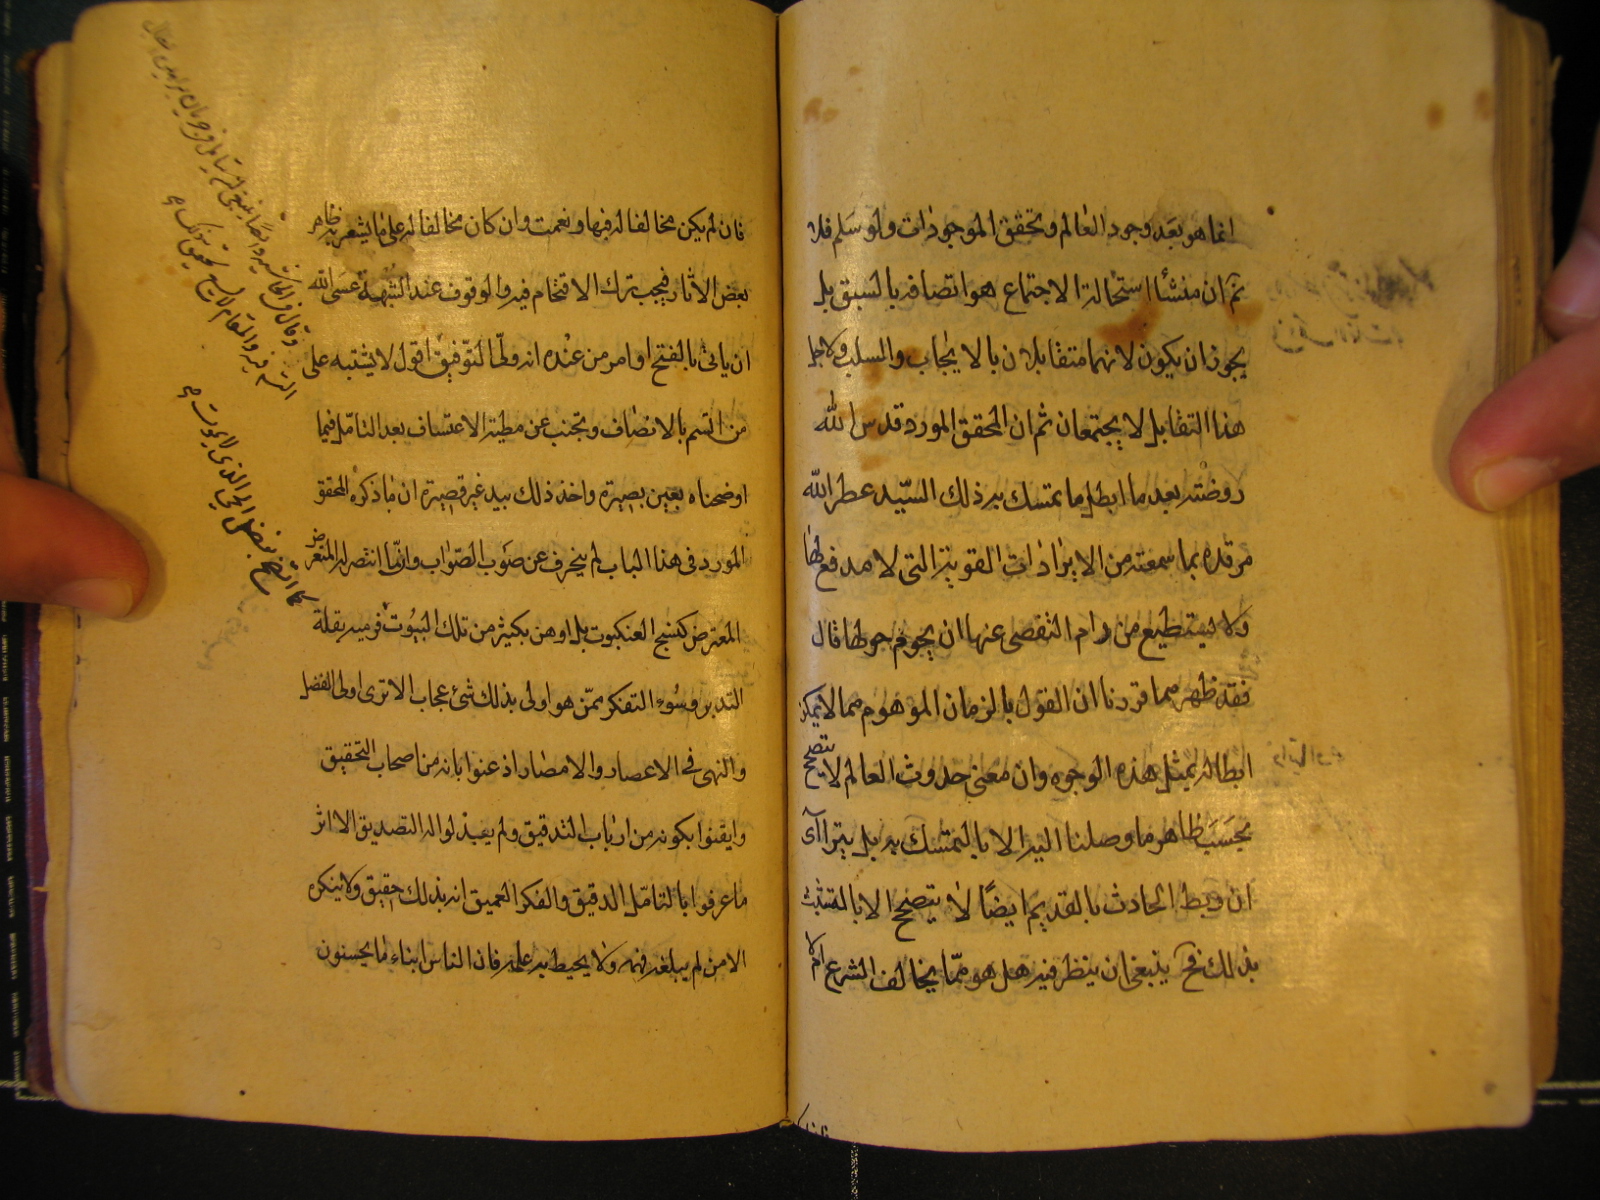 انما هو بعد وجود العالم وتحقق الموجودات ولو سلم فلا
ثم ان منشأ استحالة الاجتماع هو اتصافه بالسبق بل
يجوز ان يكون لانهما متقابلان بالايجاب والسلب ولاجل
هذا التقابل لا يجتمعان ثم ان المحقق المورد قدس الله
روضته بعد ما ابطل ما تمسك به ذلك السيّد عطر الله
مرقده بما سمعته من الايرادات القوية التى لا مدفع لها
ولا يستطيع من رام التقصى عنها ان يحوم حولها قال
فقد ظهر مما قررنا ان القول بالزمان الموهوم مما لا يمكن
ابطاله بمثل هذه الوجوه وان معنى حدوث العالم لا يتصحح
بحسب ظاهر ما وصلنا اليه الا بالتمسك به بل يترا آى
ان ربط الحادث بالقديم ايضًا لا يتصحح الا بالتشبث
بذلك فح ينبغى ان ينظر فيه هل هو ممّا يخالف الشرع ام لا
فان لم يكن مخالفا له فبها ونعمت وان كان مخالفا له على ما يشعر به ظاهر
بعض الآثار فيجب ترك الاقتحام فيه والوقوف عند الشبهة عسى الله
ان ياتى بالفتح او امر من عنده انه ولىّ التوفيق اقول لا يشتبه على
من اتسم بالانصاف وتجنب عن مطية الاعتساف بعد التامّل فيما
اوضحناه بعين بصيرة واخذ ذلك بيد غير قصيرة ان ما ذكره المحقق
المورد فى هذا الباب لم ينحرف عن صَوب الصّواب وانّ ما انتصر له المتعرض
المعترض كنسج العنكبوت بل اوهن بكثير من تلك البيُوت فرميه بقلة
التدبر وسُوء التفكر ممّن هو اولى بذلك شئ عجاب الا ترى اولى الفضل
والنهى فى الاعصار والامصار اذعنوا بانه من اصحاب التحقيق
وايقنوا بكونه من ارباب التدقيق ولم يعبذلوا له التصديق الا اثر
ما عرفوا بالتامّل الدقيق والفكر العميق انه بذلك حقيق ولا ينكره
الا من لم يبلغه فهمه ولا يحيط به علمه فان الناس ابناء ما يحسنون
كما اتضح بفضل الحى الذى لا يموت